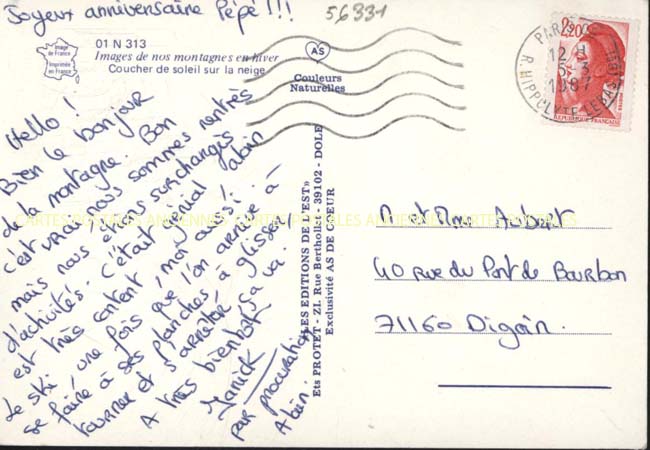 Joyeux anniversaire Pépé !!!
56331
Image
de France
Imprimée
en France
01 N 313
Images de nos montagnes en hiver
Coucher de soleil sur la neige
AS
Couleurs
Naturelles
Hello !
Bien le bonjour
de la montagne. Bon
c'est vrai, nous sommes rentrés
mais nous étions surchargés
d'activités. C'était génial. Alain
est très content, moi aussi !
Le ski, une fois que l'on arrive à
se faire à ses planches à glisser,
tourner et s'arrêter sa va !
A très bientôt
Yanick
par procuration
Alain.
«LES EDITIONS DE L'EST»
Ets PROTET - ZI. Rue Berthollet - 39102 - DOLE
Exclusivité AS DE COEUR
2,20
REPUBLIQUE FRANÇAISE
PARIS
12 H
5-3
1987
R. HIPPOLYTE LEBAS
M et Mme Aubert
40 rue du Pont de Bourbon
71160 Digoin.
CARTES POSTALES ANCIENNES CARTES POSTALES ANCIENNES CARTES POSTALES